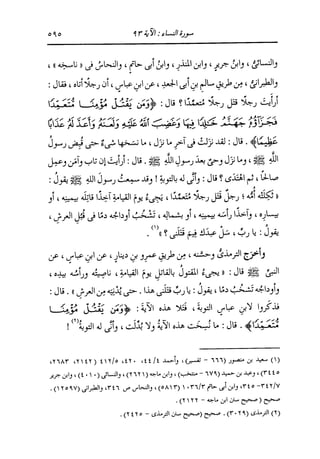 سورة النساء : الآية ٩٣
٥٩٥
والنسائىُّ ، وابنُ جريرٍ ، وابن المنذرِ ، وابنُ أبى حاتمٍ ، والنحاسُ فى « ناسخِه » ،
والطبرانىُّ ، مِن طريقِ سالمِ بنِ أبى الجعدِ ، عن ابنِ عباسٍ ، أن رجلًا أتاه ، فقال :
أرأيتَ رجلًا قتَل رجلًا متعمِّدًا ؟ قال : ﴿وَمَن يَقْتُلْ مُؤْمِنًا مُّتَعَمِّدًا
فَجَزَآؤُهُ جَهَنَّمُ خَالِدًا فِيهَا وَغَضِبَ اللَّهُ عَلَيْهِ وَلَعَنَهُ وَأَعَدَّ لَهُ عَذَابًا
عَظِيمًا﴾ . قال : لقد نزَلتْ فى آخرِ ما نزَل ، ما نسَخها شىءٌ حتى قُبِض رسولُ
اللَّهِ ﷺ ، وما نزَل وحىٌ بعدَ رسولِ اللَّهِ ﷺ . قال : أرأيتَ إن تاب وآمَن وعمِل
صالحًا ، ثم اهْتدَى ؟ قال : وأنَّى له بالتوبةِ ! وقد سمِعتُ رسولَ اللهِ ﷺ يقولُ :
« ثَكِلته أُمُّه ؛ رجلٌ قتَل رجلًا متعمِّدًا ، يَجِىءُ يومَ القيامةِ آخِذًا قاتلَه بيمينِه ، أو
بيسارِه ، وآخذًا رأسَه بيمينِه ، أو بشمالِه ، تَشْخُبُ أوداجُه دمًا فى قُبُلِ العرشِ ،
يقولُ : يا ربِّ ، سَلْ عبدَك فيمَ قتَلنى ؟ » (١) .
وأخرَج الترمذىُّ وحسَّنه ، مِن طريقِ عمرِو بنِ دينارٍ ، عن ابنِ عباسٍ ، عن
النبىِّ ﷺ قال : « يَجِىءُ المقتولُ بالقاتلِ يومَ القيامةِ ، ناصيتُه ورأسُه بيدِه ،
وأوداجُه تَشْخُبُ دمًا ، يقولُ : يا ربِّ قتَلنى هذا . حتى يُدْنِيَه مِن العرشِ » . قال :
فذكَروا لابنِ عباسٍ التوبةَ ، فتَلا هذه الآيةَ : ﴿وَمَن يَقْتُلْ مُؤْمِنًا
مُّتَعَمِّدًا﴾ . قال : ما نُسِخت هذه الآيةُ ولا بُدِّلت ، وأنَّى له التوبةُ (٢) !
(١) سعيد بن منصور (٦٦٦ - تفسير) ، وأحمد ٤٤/٤ ، ٤٢٠ ، ٤١٢/٥ (٢١٤٢ ، ٢٦٨٣ ،
٣٤٤٥) ، وعبد بن حميد (٦٧٩ - منتخب) ، وابن ماجه (٢٦٢١) ، والنسائى (٤٠١٠) ، وابن جرير
٣٤٢/٧ - ٣٤٥ ، وابن أبى حاتم ١٠٣٦/٣ (٥٨١٣) ، والنحاس ص ٣٤٦ ، والطبرانى (١٢٥٩٧) .
صحيح (صحيح سنن ابن ماجه - ٢١٢٢) .
(٢) الترمذى (٣٠٢٩) . صحيح (صحيح سنن الترمذى - ٢٤٢٥) .